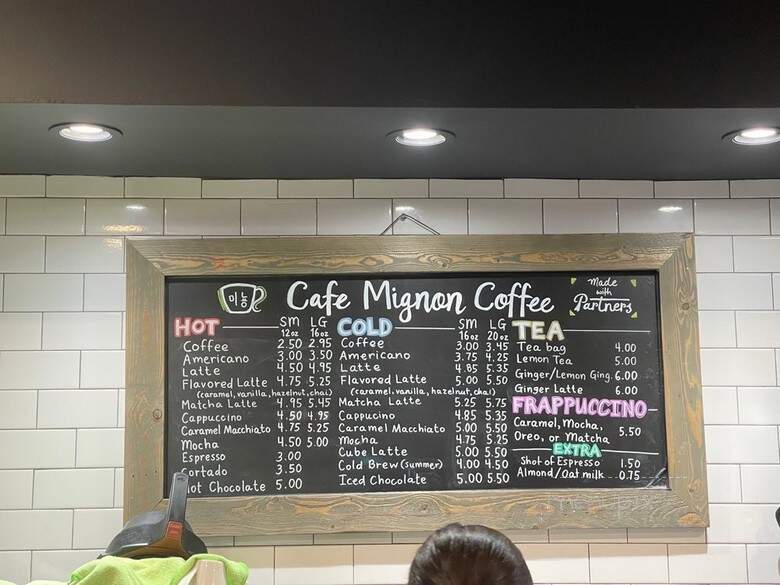 미뇽
Cafe Mignon Coffee
made
with
Partners
HOT SM LG
12oz 16oz
Coffee 2.50 2.95
Americano 3.00 3.50
Latte 4.50 4.95
Flavored Latte 4.75 5.25
(caramel, vanilla, hazelnut, chai)
Matcha Latte 4.95 5.45
Cappucino 4.50 4.95
Caramel Macchiato 4.75 5.25
Mocha 4.50 5.00
Espresso 3.00
Cortado 3.50
Hot Chocolate 5.00
COLD SM LG
16oz 20oz
Coffee 3.00 3.45
Americano 3.75 4.25
Latte 4.85 5.35
Flavored Latte 5.00 5.50
(caramel, vanilla, hazelnut, chai)
Matcha Latte 5.25 5.75
Cappucino 4.85 5.35
Caramel Macchiato 5.00 5.50
Mocha 4.75 5.25
Cube Latte 5.00 5.50
Cold Brew (summer) 4.00 4.50
Iced Chocolate 5.00 5.50
TEA
Tea bag 4.00
Lemon Tea 5.00
Ginger/Lemon Ging. 6.00
Ginger Latte 6.00
FRAPPUCCINO
Caramel, Mocha,
Oreo, or Matcha 5.50
EXTRA
Shot of Espresso 1.50
Almond/Oat milk 0.75